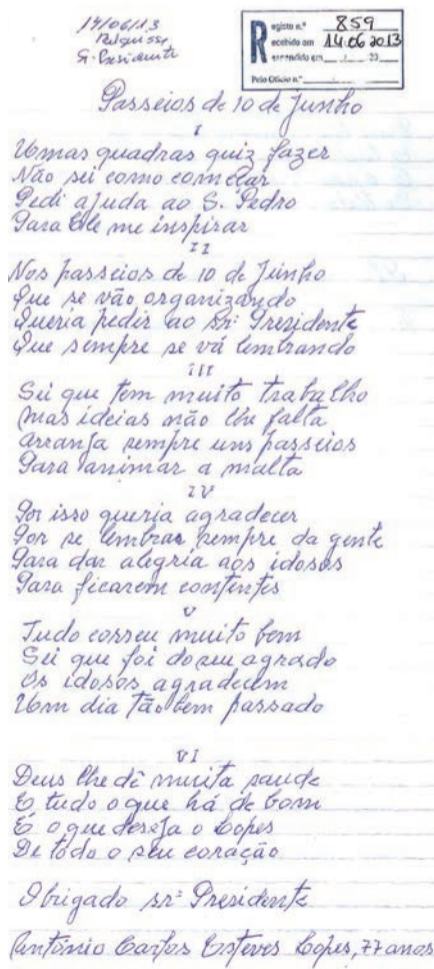 14/06/13
Sr. Presidente
Registo n.º 859
Recebido em 14.06.2013
Respondido em / / 20
Pelo Ofício n.º
Passeios de 10 de Junho
I
Umas quadras quiz fazer
Não sei como começar
Pedi ajuda ao S. Pedro
Para Ele me inspirar
II
Nos passeios de 10 de Junho
Que se vão organizando
Queria pedir ao Sr: Presidente
Que sempre se vá lembrando
III
Sei que tem muito trabalho
Mas ideias não lhe falta
Arranja sempre uns passeios
Para animar a malta
IV
Por isso queria agradecer
Por se lembrar sempre da gente
Para dar alegria aos idosos
Para ficarem contentes
V
Tudo correu muito bem
Sei que foi do seu agrado
Os idosos agradecem
Um dia tão bem passado
VI
Deus lhe dê muita saude
E tudo o que há de bom
É o que deseja o Lopes
De todo o seu coração
Obrigado sr: Presidente
António Carlos Esteves Lopes, 77 anos